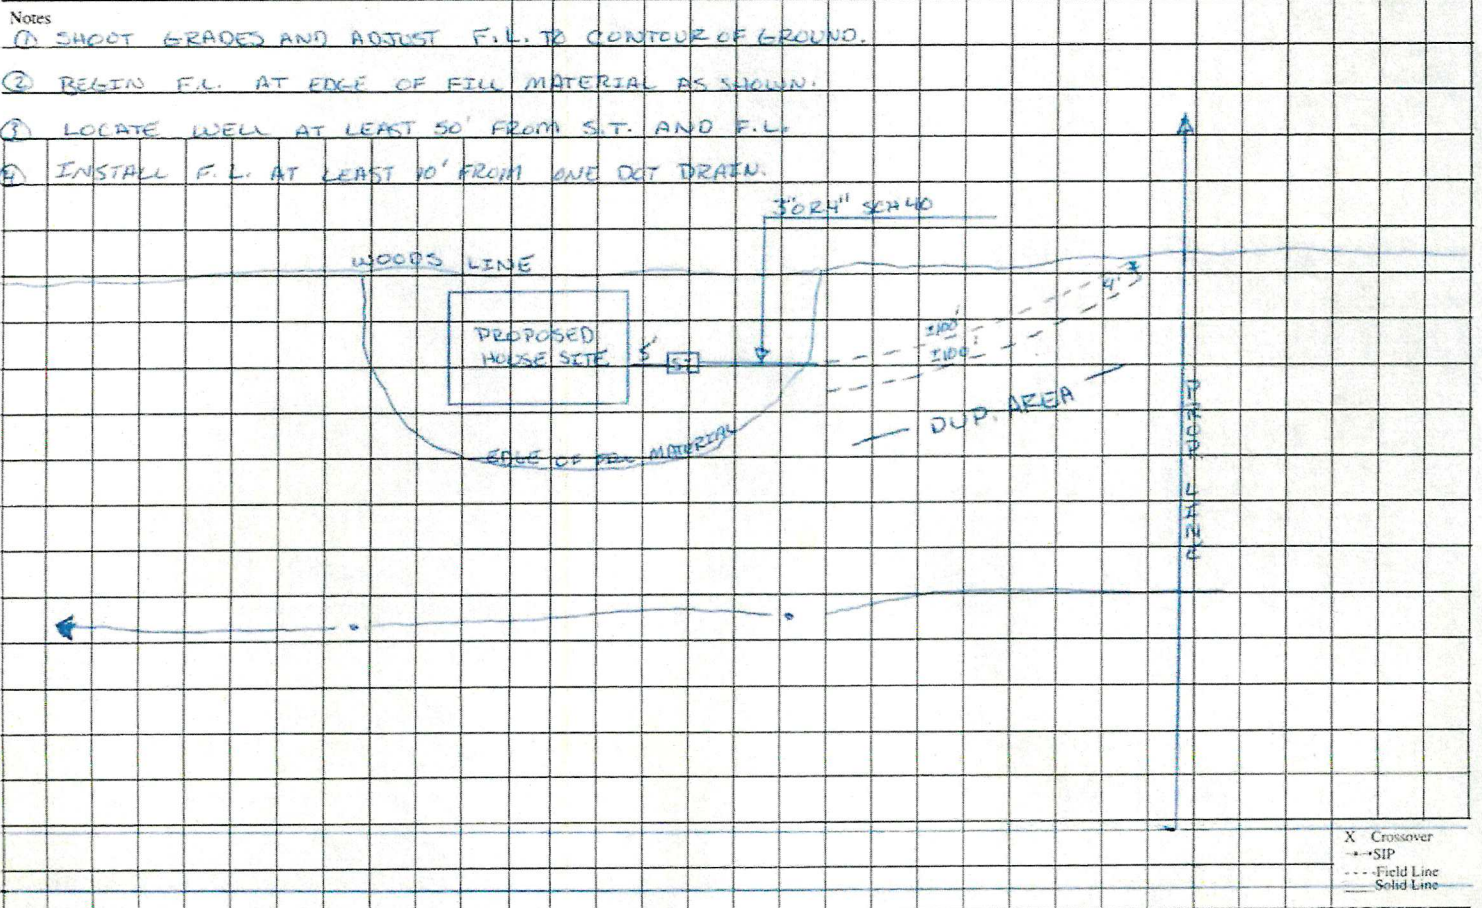 Notes
① SHOOT GRADES AND ADJUST F.L. TO CONTOUR OF GROUND.
② BEGIN F.L. AT EDGE OF FILL MATERIAL AS SHOWN.
③ LOCATE WELL AT LEAST 50' FROM S.T. AND F.L.
④ INSTALL F.L. AT LEAST 10' FROM ONE DOT DRAIN.
3"OR4" SCH 40
WOODS LINE
9'
PROPOSED
HOUSE SITE
5'
S.T.
±100'
±100'
DUP. AREA
EDGE OF FILL MATERIAL
X Crossover
SIP
Field Line
Solid Line